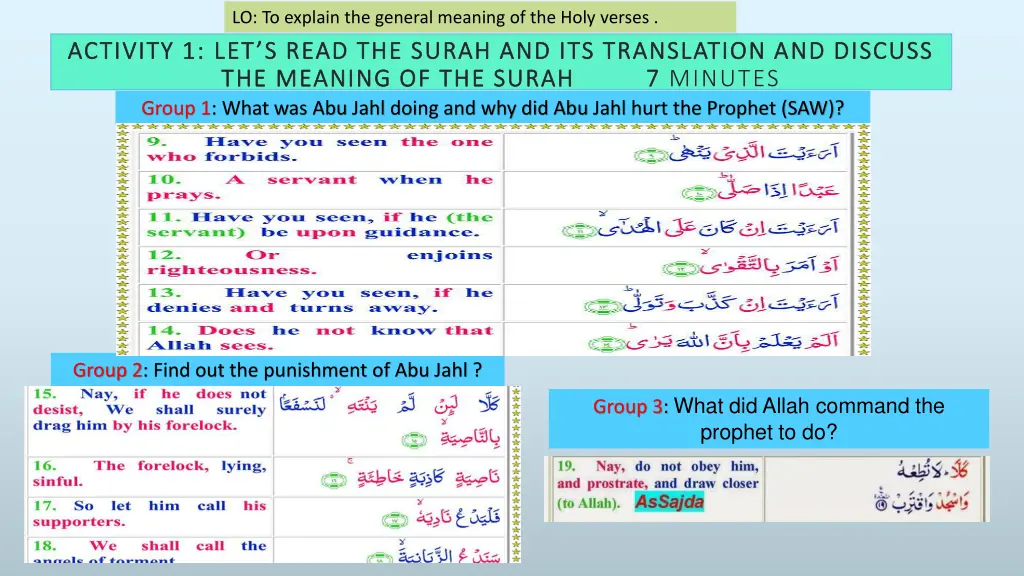 LO: To explain the general meaning of the Holy verses .
ACTIVITY 1: LET’S READ THE SURAH AND ITS TRANSLATION AND DISCUSS
THE MEANING OF THE SURAH 7 MINUTES
Group 1: What was Abu Jahl doing and why did Abu Jahl hurt the Prophet (SAW)?
9. Have you seen the one
who forbids.
اَرَءَيْتَ الَّذِىْ يَنْهٰىۙ ﴿۹﴾
10. A servant when he
prays.
عَبْدًا اِذَا صَلّٰىؕ ﴿۱۰﴾
11. Have you seen, if he (the
servant) be upon guidance.
اَرَءَيْتَ اِنْ كَانَ عَلَى الْهُدٰٓىۙ ﴿۱۱﴾
12. Or enjoins
righteousness.
اَوْ اَمَرَ بِالتَّقْوٰىۙ ﴿۱۲﴾
13. Have you seen, if he
denies and turns away.
اَرَءَيْتَ اِنْ كَذَّبَ وَتَوَلّٰىؕ ﴿۱۳﴾
14. Does he not know that
Allah sees.
اَلَمْ يَعْلَمْ بِاَنَّ اللّٰهَ يَرٰىؕ ﴿۱۴﴾
Group 2: Find out the punishment of Abu Jahl ?
15. Nay, if he does not
desist, We shall surely
drag him by his forelock.
كَلَّا لَئِنْ لَّمْ يَنْتَهِ ۙ لَنَسْفَعًۢا
بِالنَّاصِيَةِۙ ﴿۱۵﴾
16. The forelock, lying,
sinful.
نَاصِيَةٍ كَاذِبَةٍ خَاطِئَةٍۚ ﴿۱۶﴾
17. So let him call his
supporters.
فَلْيَدْعُ نَادِيَهٗۙ ﴿۱۷﴾
18. We shall call the
angels of torment
سَنَدْعُ الزَّبَانِيَةَۙ ﴿۱۸﴾
Group 3: What did Allah command the
prophet to do?
19. Nay, do not obey him,
and prostrate, and draw closer
(to Allah). AsSajda
كَلَّا ؕ لَا تُطِعْهُ
وَاسْجُدْ وَاقْتَرِبْ ۩ ﴿۱۹﴾